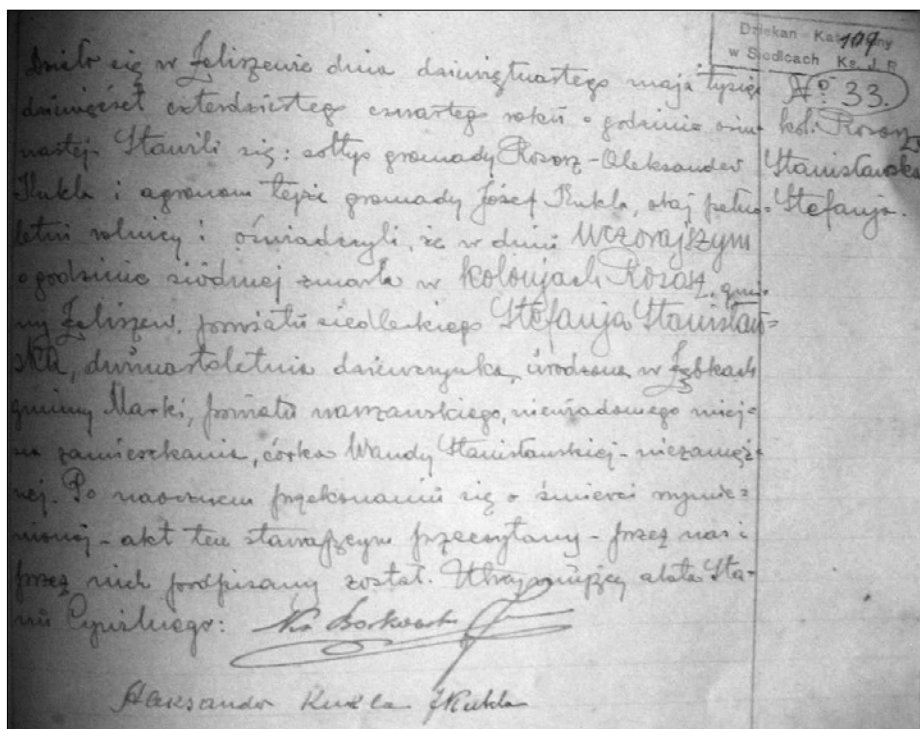 Dziekan - Kat
w Siedlcach Ks. J. P.
109
№ 33.
kol. Rososz
Stanisławska
Stefanja.
Działo się w Żeliszewie dnia dziewiętnastego maja tysiąc
dziewięćset czterdziestego czwartego roku o godzinie osiem-
nastej. Stawili się: sołtys gromady Rososz - Aleksander
Kukla i agronom tejże gromady Józef Kukla, obaj pełno-
letni rolnicy i oświadczyli, że w dniu wczorajszym
o godzinie siódmej zmarła w kolonjach Rososz, gmi-
ny Żeliszew, powiatu siedleckiego Stefanja Stanisław-
ska, dwunastoletnia dziewczynka, urodzona w Ząbkach
gminy Marki, powiatu warszawskiego, niewiadomego miej-
sca zamieszkania, córka Wandy Stanisławskiej - niezamęż-
nej. Po naocznem przekonaniu się o śmierci wymie-
nionej - akt ten stawającym przeczytany - przez nas i
przez nich podpisany został. Utrzymujący akta Sta-
nu Cywilnego:
Aleksander Kukla JKukla